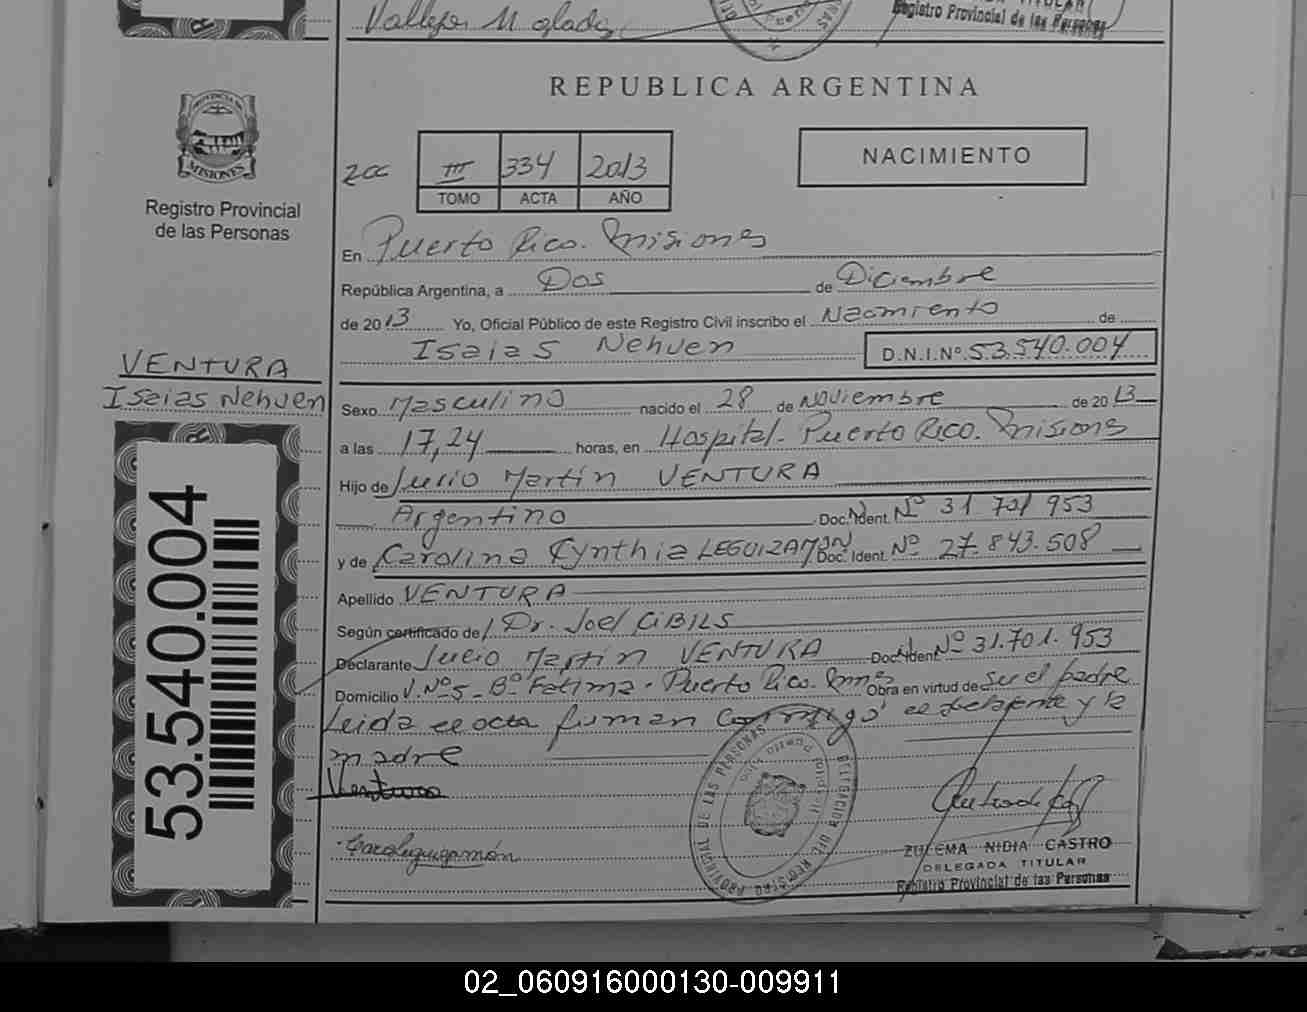 Vallejos M. Gladys
TITULAR
Registro Provincial de las Personas
REPUBLICA ARGENTINA
PROVINCIA DE
MISIONES
Registro Provincial
de las Personas
III 334 2013
TOMO ACTA AÑO
NACIMIENTO
En Puerto Rico. Misiones
República Argentina, a Dos de Diciembre
de 2013 Yo, Oficial Público de este Registro Civil inscribo el Nacimiento de
Isaias Nehuen D.N.I.Nº 53.540.004
VENTURA
Isaias Nehuen
Sexo Masculino nacido el 28 de Noviembre de 2013
a las 17,24 horas, en Hospital. Puerto Rico. Misiones
Hijo de Julio Martín VENTURA
Argentino Doc. Ident. Nº 31 701 953
y de Carolina Cynthia LEGUIZAMON Doc. Ident. Nº 27.843.508
Apellido VENTURA
Según certificado de Dr. Joel CIBILS
Declarante Julio Martín VENTURA Doc. Ident. Nº 31.701.953
Domicilio V. Nº 5 - Bº Fátima. Puerto Rico. Mnes Obra en virtud de su el padre
Leida el acta firman conmigo el declarante y la
madre
Ventura
53.540.004
PROVINCIAL DE LAS PERSONAS
DELEGACION DEL REGISTRO
Puerto Rico
ZULEMA NIDIA CASTRO
DELEGADA TITULAR
Registro Provincial de las Personas
02_060916000130-009911